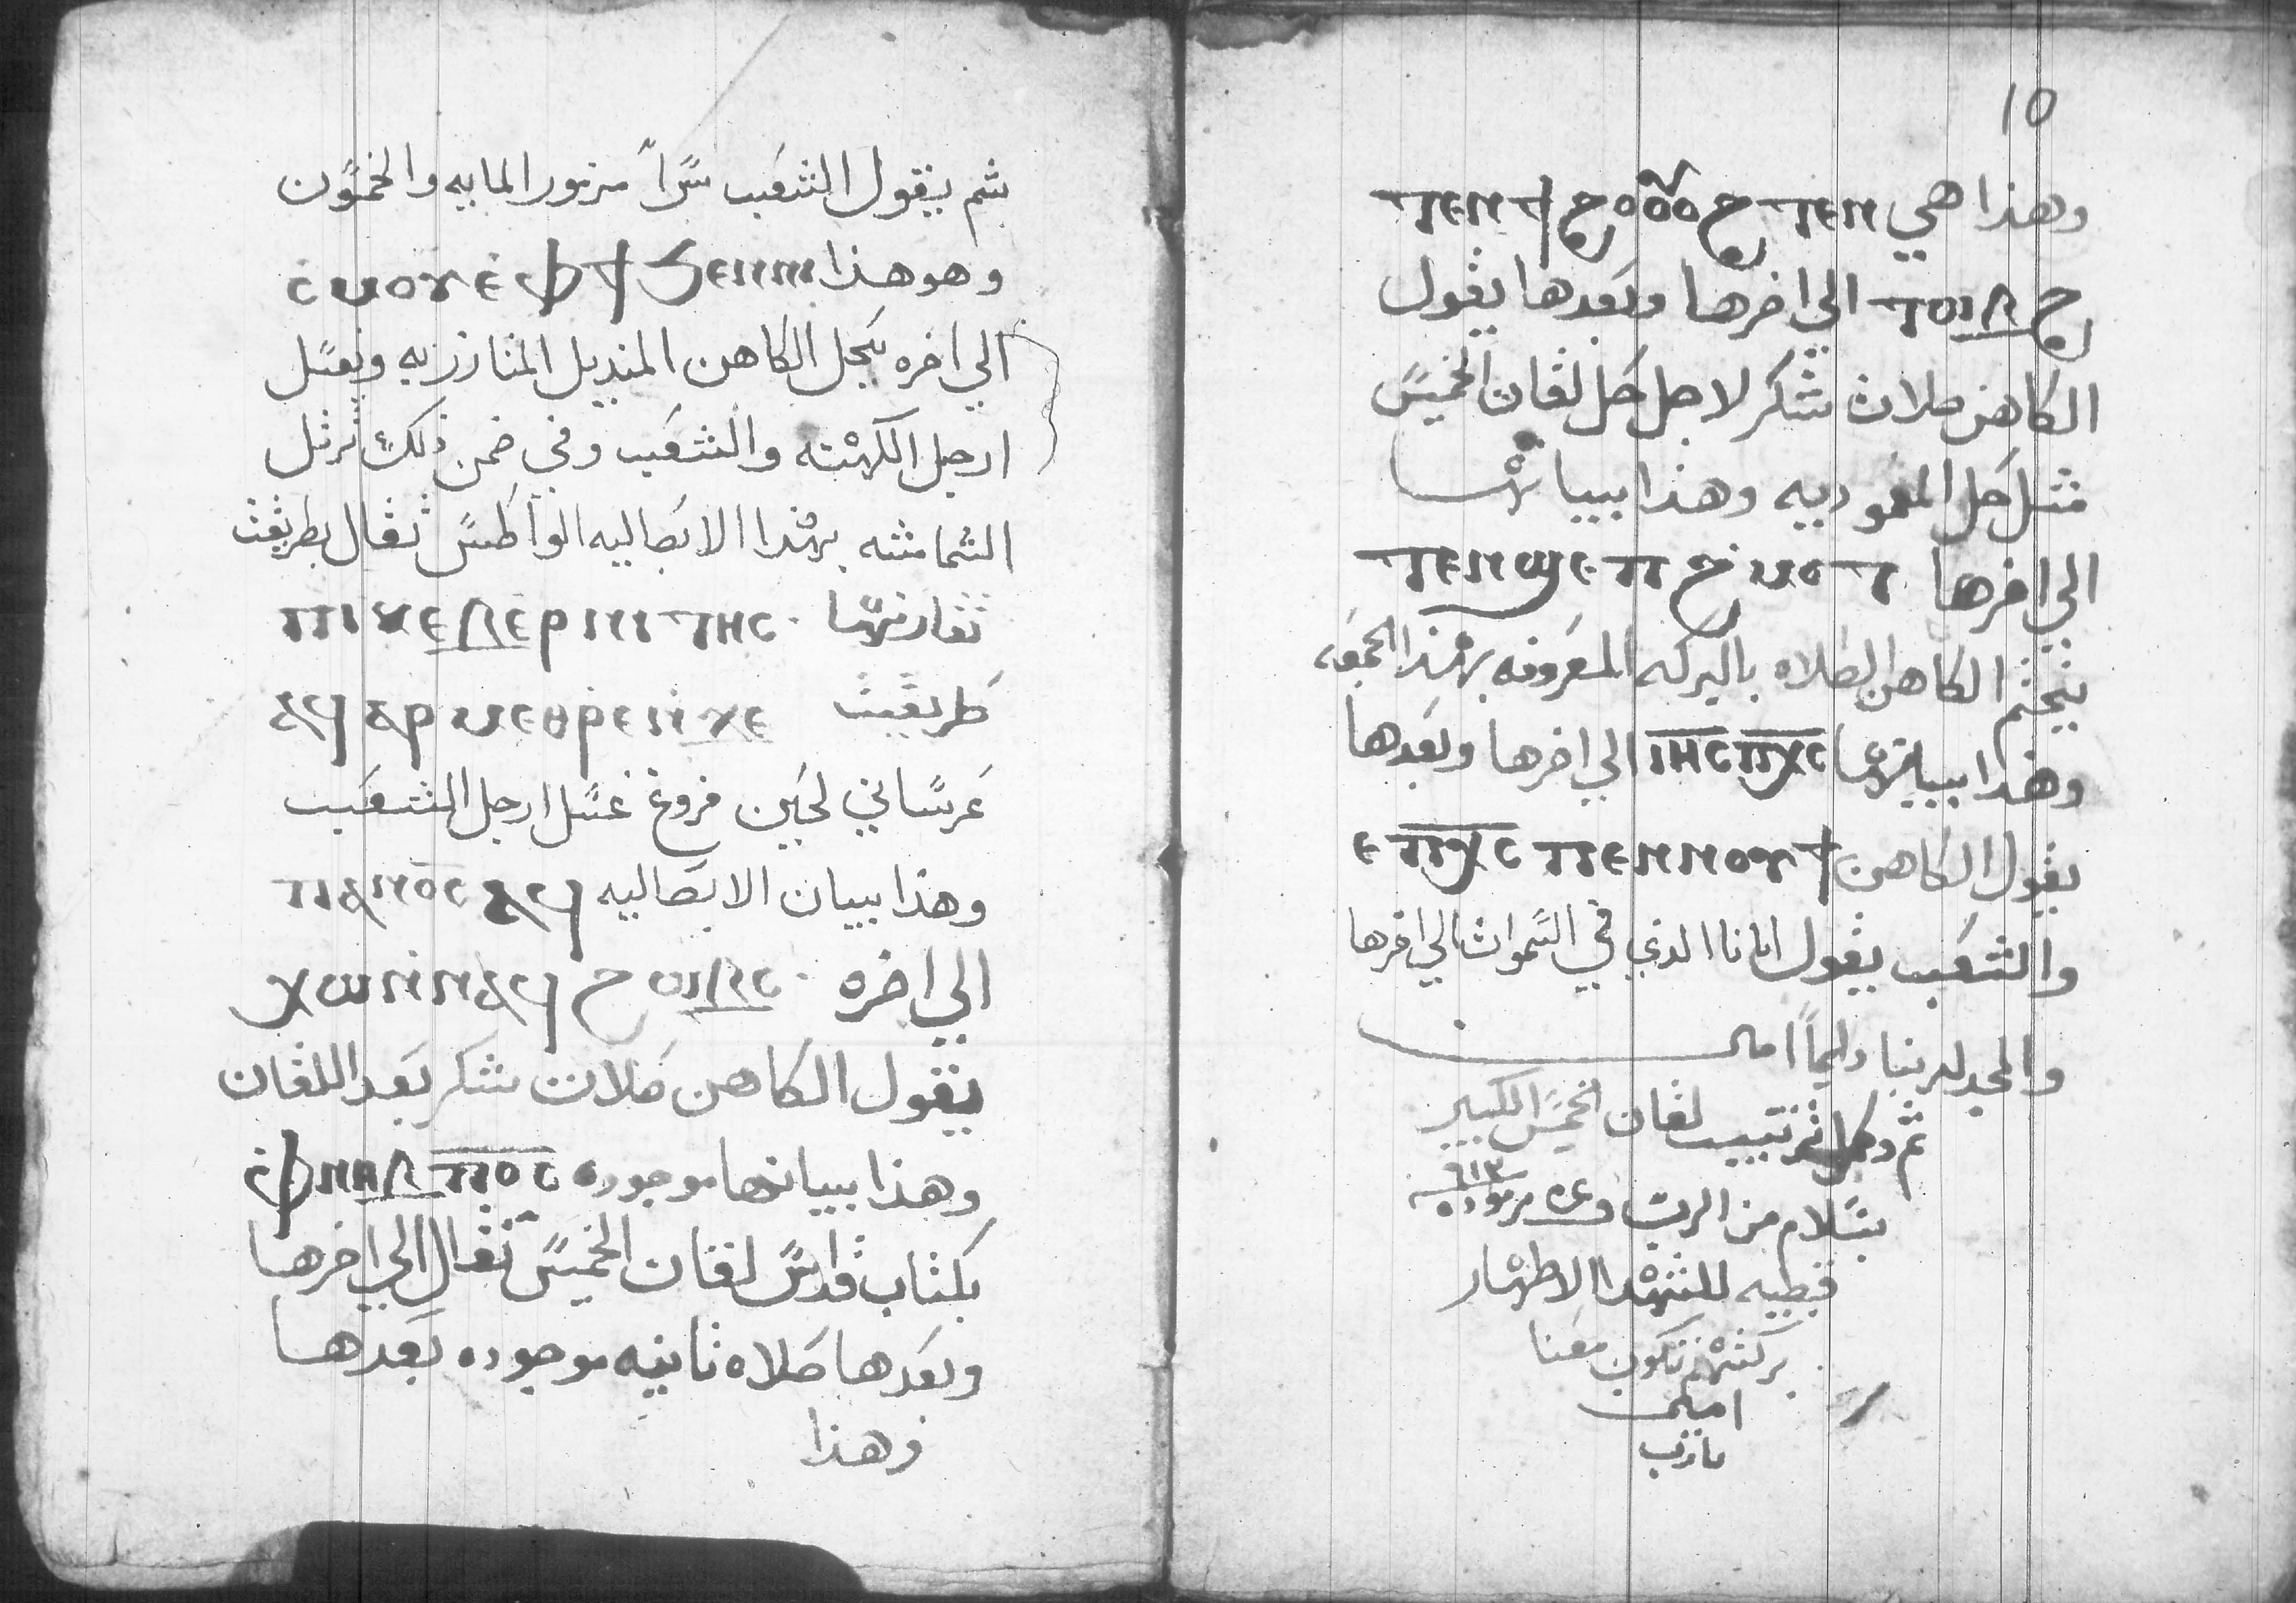 ثم يقول الشعب سراً مزمور المايه والخمسون
وهو هذا ⲥⲙⲟⲩ ⲉⲫϯ ϧⲉⲛⲛⲏ
الي اخره يحل الكاهن المنديل المتازر به ويغسل
ارجل الكهنه والشعب وفي ضمن ذلك ترتل
الشمامسه بهذا الابصاليه الواطس تقال بطريقت
ⲡⲓⲭⲉⲗⲉⲣⲓⲛ ⲧⲏⲥ
طريقيت ⲁϥⲉⲣⲙⲉⲑⲣⲉ ⲛϫⲉ
غرساني لحين فروغ غسل ارجل الشعب
وهذا بيان الابصاليه ⲡⲁⲛⲟⲥ ⲁϥ
الي اخره ⲭⲱⲛ ⲛⲁϥ
يقول الكاهن صلات شكر بعد اللقان
وهذا بيانها موجوده ⲫⲛⲏⲃ ⲡⲟⲥ
بكتاب قداس لقان الخميس تقال الي اخرها
وبعدها صلاه ثانيه موجوده بعدها
وهذا
١٥
وهذا هي ⲧⲉⲛϯϩⲟ ⲧⲉⲛ
الي اخرها وبعدها يقول
الكاهن صلات شكر لاجل حل لقان الخميس
مثل حل المعموديه وهذا بيانها
الي اخرها ⲧⲉⲛϣⲉⲡϩⲙⲟⲧ
يختم الكاهن الصلاه بالبركه المعروفه بهذا الجمعه
وهذا بيانها ⲓⲏⲥ ⲡⲭⲥ الي اخرها وبعدها
يقول الكاهن ⲡⲭⲥ ⲡⲉⲛⲛⲟⲩϯ
والشعب يقول ابانا الذي في السموات الي اخرها
والمجد لربنا دايماً امين
تم وكمل ترتيب لقان الخميس الكبير
بسلام من الرب
قبطيه للشهدا الاطهار
بركتهم تكون معنا
امين